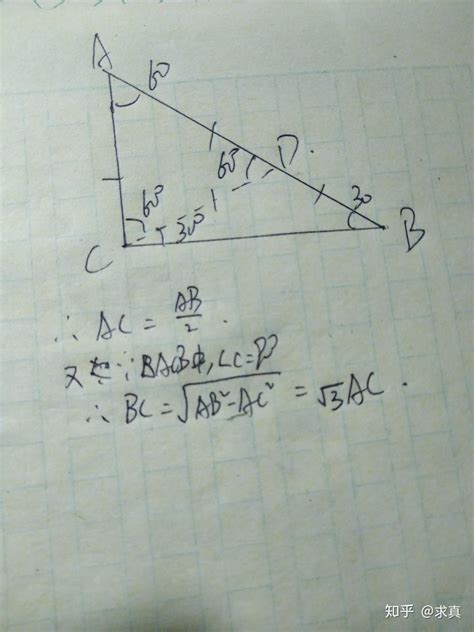 A 60
60 D
60 30 30
C B
∴ AC = AB/2.
又∵ BACB中, ∠C=
∴ BC = √AB²-AC² = √3AC.
知乎 @求真